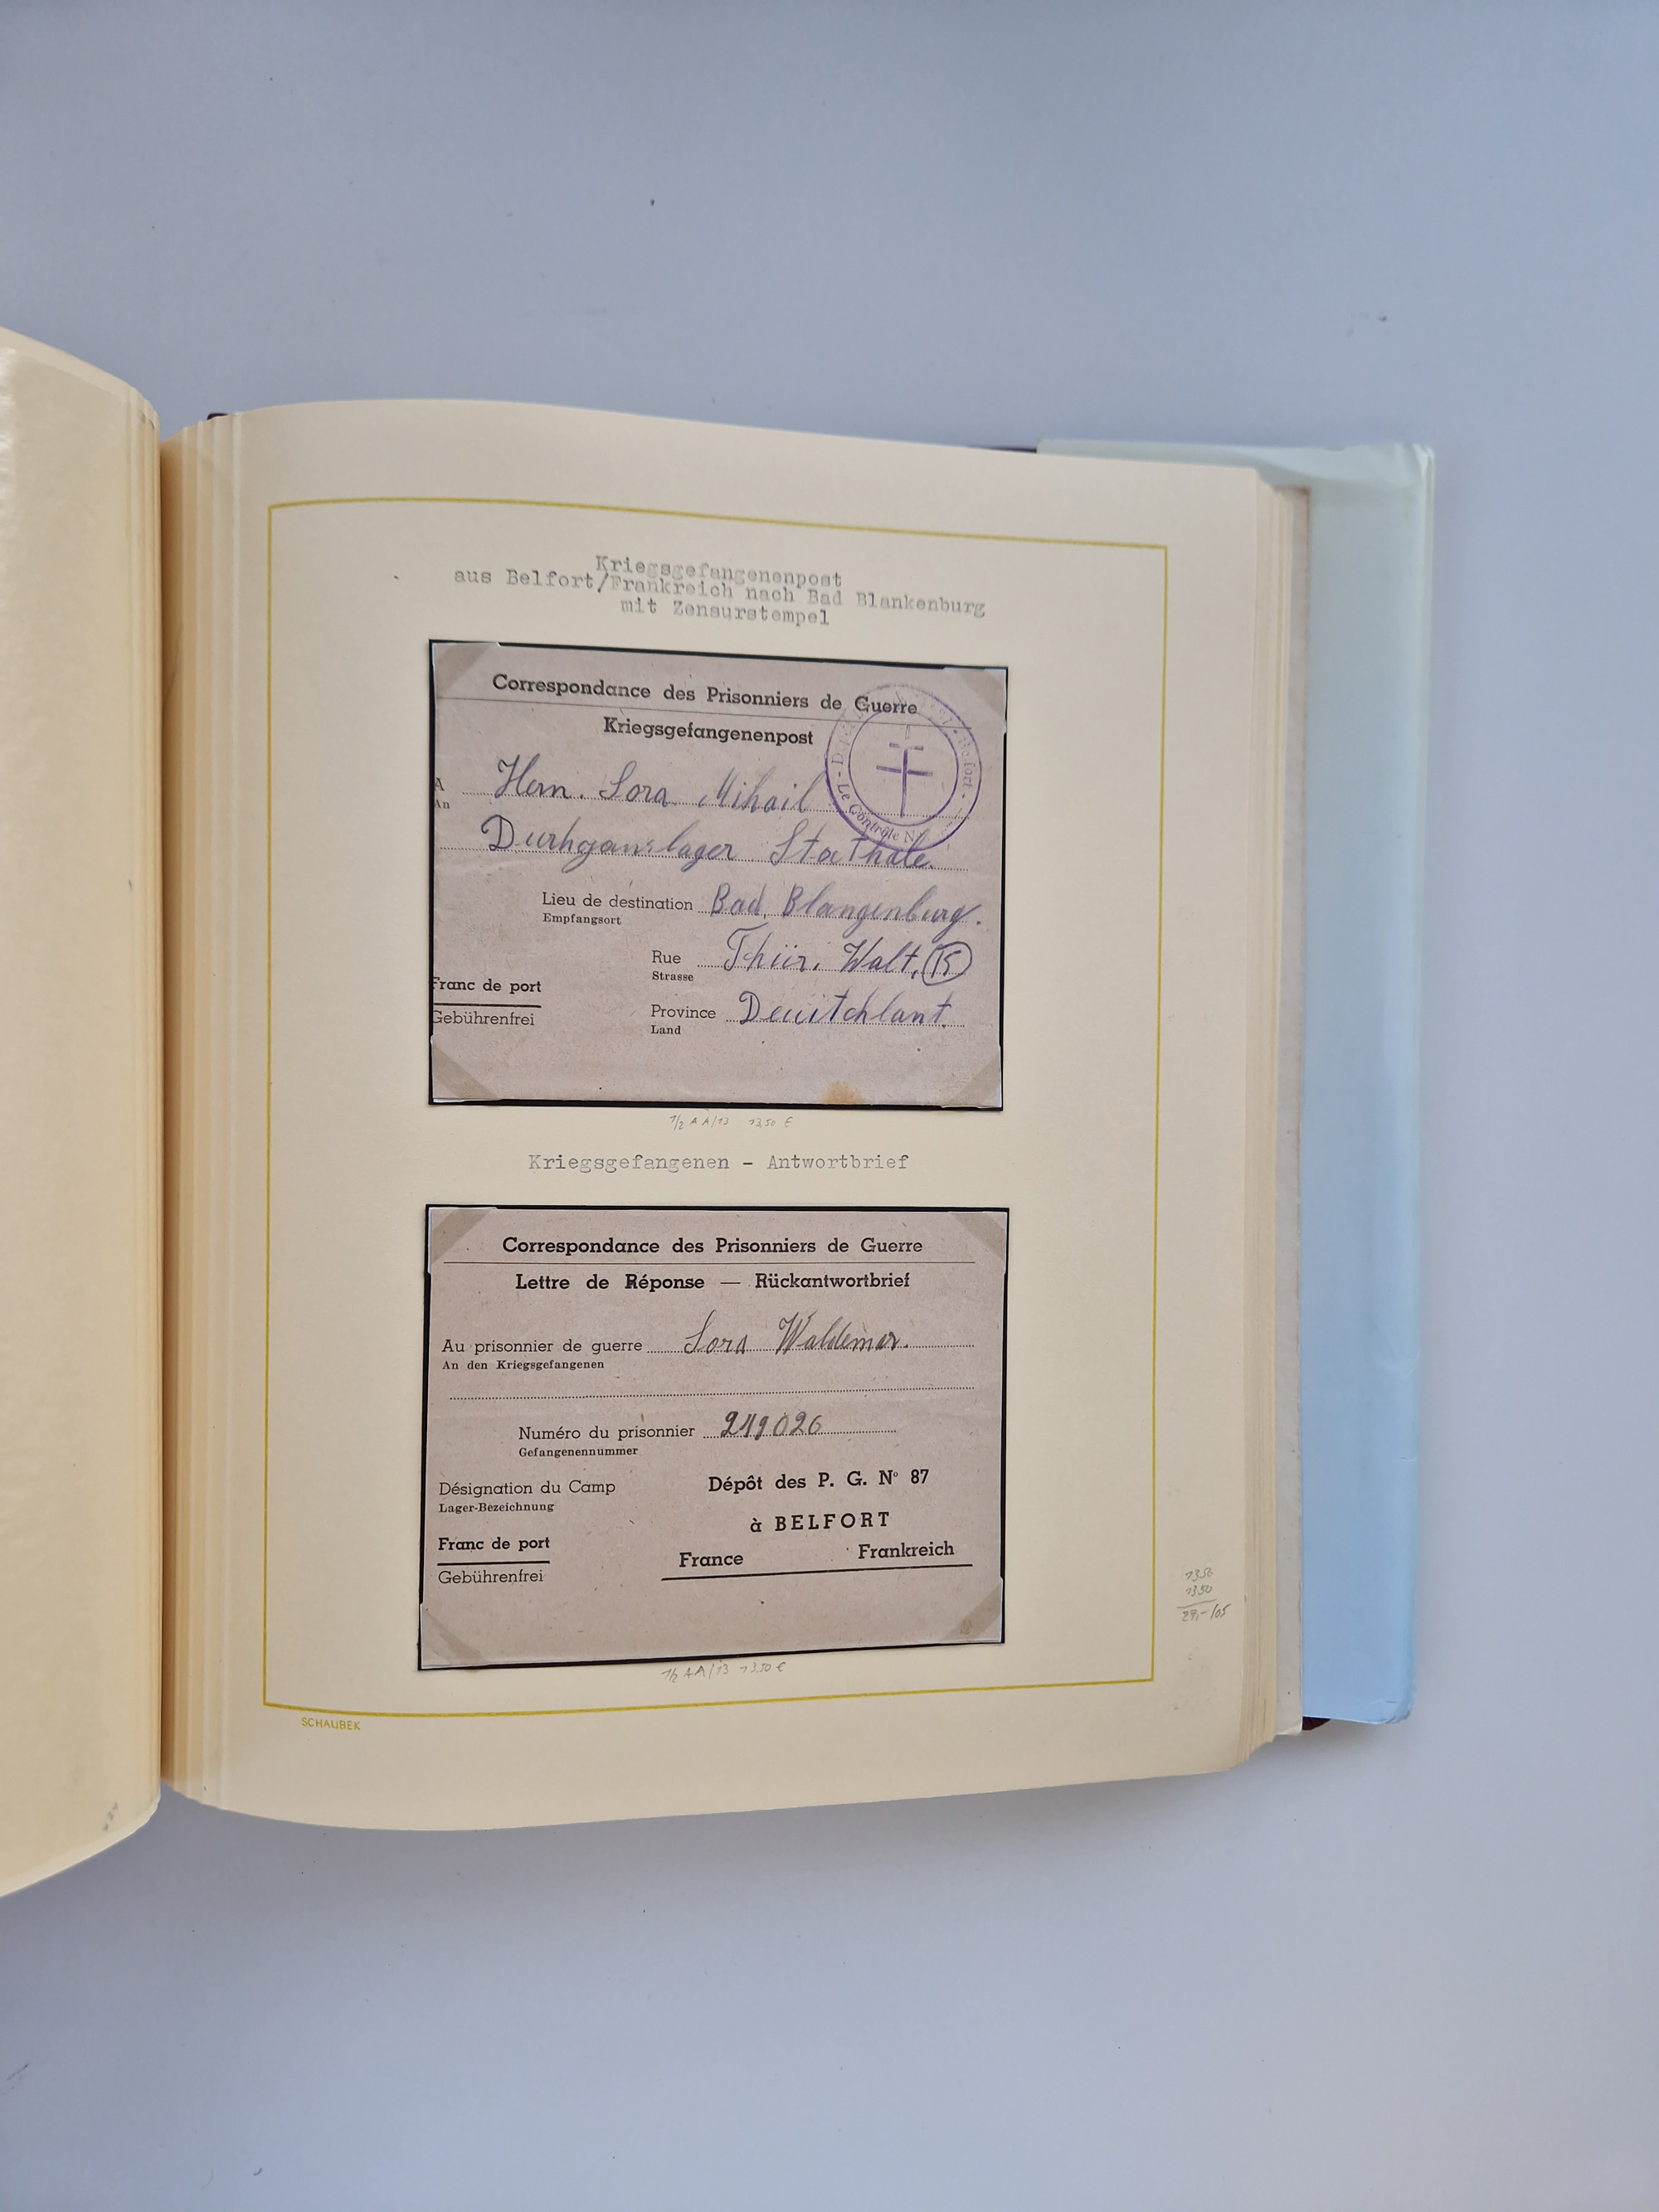 Kriegsgefangenenpost
aus Belfort/Frankreich nach Bad Blankenburg
mit Zensurstempel
Correspondance des Prisonniers de Guerre
Kriegsgefangenenpost
Belfort -
Le Contrôle N
A
An
Herrn. Sora Mihail
Durhganslager Stathale.
Lieu de destination Bad, Blangenburg.
Empfangsort
Rue Thür. Walt,
Strasse
Franc de port
Gebührenfrei
Province Deuitchlant.
Land
1/2 AA/13 13,50 €
Kriegsgefangenen - Antwortbrief
Correspondance des Prisonniers de Guerre
Lettre de Réponse — Rückantwortbrief
Au prisonnier de guerre Sora Waldemar.
An den Kriegsgefangenen
Numéro du prisonnier 249026
Gefangenennummer
Désignation du Camp
Lager-Bezeichnung
Dépôt des P. G. Nº 87
à BELFORT
Franc de port
Gebührenfrei
France Frankreich
1/2 AA/13 13,50 €
1350
1350
27,-/05
SCHAUBEK